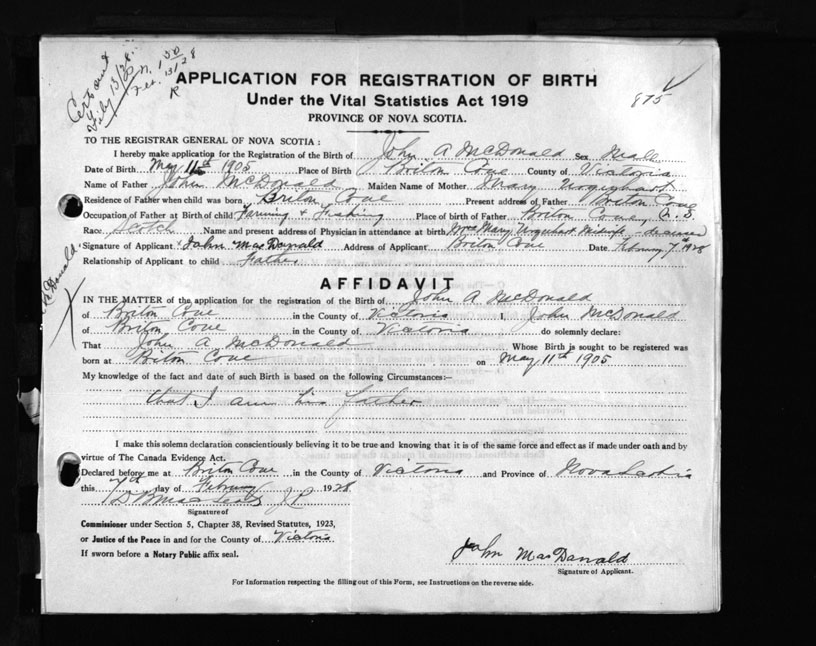 Cert sent
Feb 13/28
R
875
APPLICATION FOR REGISTRATION OF BIRTH
Under the Vital Statistics Act 1919
PROVINCE OF NOVA SCOTIA.
TO THE REGISTRAR GENERAL OF NOVA SCOTIA:
I hereby make application for the Registration of the Birth of John A McDonald Sex Male
Date of Birth May 11th 1905 Place of Birth Briton Cove County of Victoria
Name of Father John McDonald Maiden Name of Mother Mary Urquhart
Residence of Father when child was born Briton Cove Present address of Father Briton Cove
Occupation of Father at Birth of child Farming & Fishing Place of birth of Father Briton Cove N.S.
Race Scotch Name and present address of Physician in attendance at birth Mrs Mary Urquhart Midwife - deceased
Signature of Applicant John MacDonald Address of Applicant Briton Cove Date February 7th 1928
Relationship of Applicant to child Father
McDonald
AFFIDAVIT
IN THE MATTER of the application for the registration of the Birth of John A McDonald
of Briton Cove in the County of Victoria I, John McDonald
of Briton Cove in the County of Victoria do solemnly declare:
That John A McDonald Whose Birth is sought to be registered was
born at Briton Cove on May 11th 1905
My knowledge of the fact and date of such Birth is based on the following Circumstances:—
that I am his father
I make this solemn declaration conscientiously believing it to be true and knowing that it is of the same force and effect as if made under oath and by
virtue of The Canada Evidence Act.
Declared before me at Briton Cove in the County of Victoria and Province of Nova Scotia
this 7th day of February 1928
J P
Signature of
Commissioner under Section 5, Chapter 38, Revised Statutes, 1923,
or Justice of the Peace in and for the County of Victoria
If sworn before a Notary Public affix seal.
John MacDonald
Signature of Applicant.
For Information respecting the filling out of this Form, see Instructions on the reverse side.